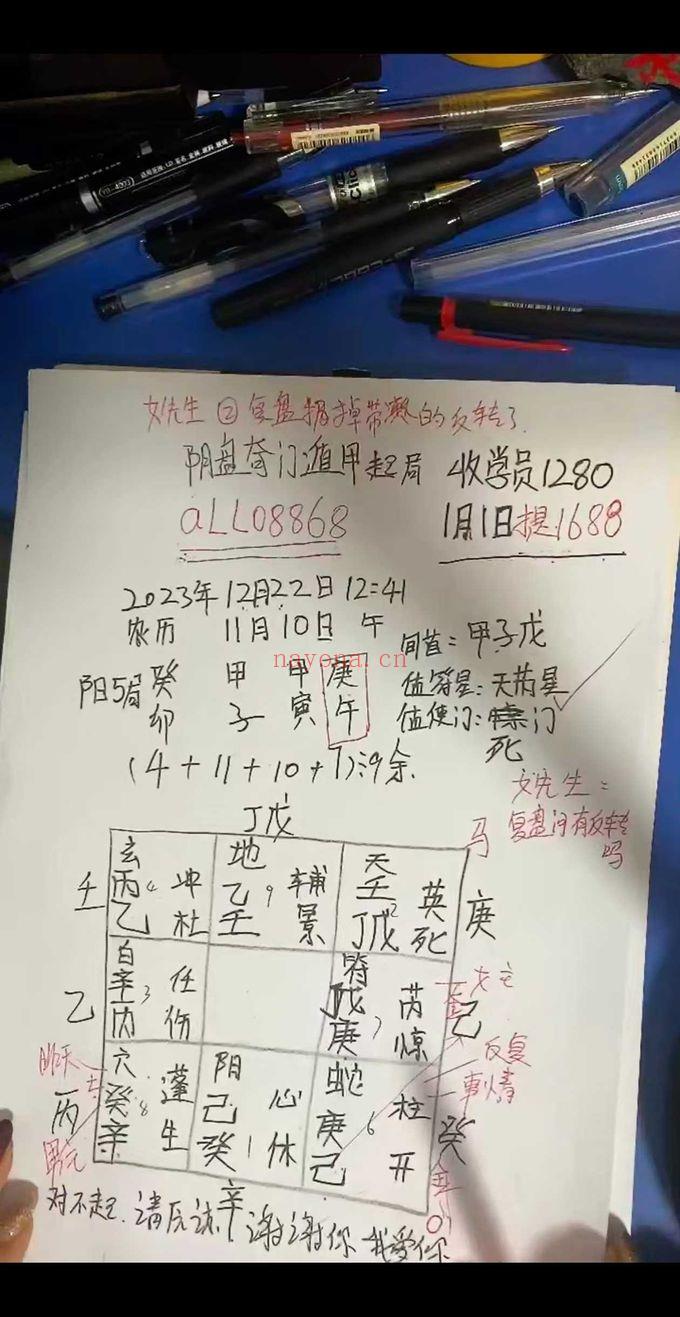 女先生 ② 复盘 掉带 的反转了
阴盘奇门遁甲起局 收学员1280
aLL08868 1月1日提1688
2023年12月22日 12:41
农历 11月10日 午 间首:甲子戊
阳5局 癸 甲 甲 庚 值符星:天芮星
卯 子 寅 午 值使门: 门
死
(4+11+10+7)÷9余
女先生:
复盘 有反转
吗
nayona.cn
丁戊
马
玄 地 天
壬 丙 4 冲 乙 9 辅 壬 2 英 庚
乙 杜 壬 景 丁戊 死
白 符
乙 辛 3 任 戊 芮 己
丙 伤 庚 7 惊
女
反复
事情
昨天
穴 阴 蛇
丙 癸 8 蓬 己 心 庚 6 柱 癸
辛 生 癸 1 休 己 开
男
辛
对不起.请 谢谢你 我爱你